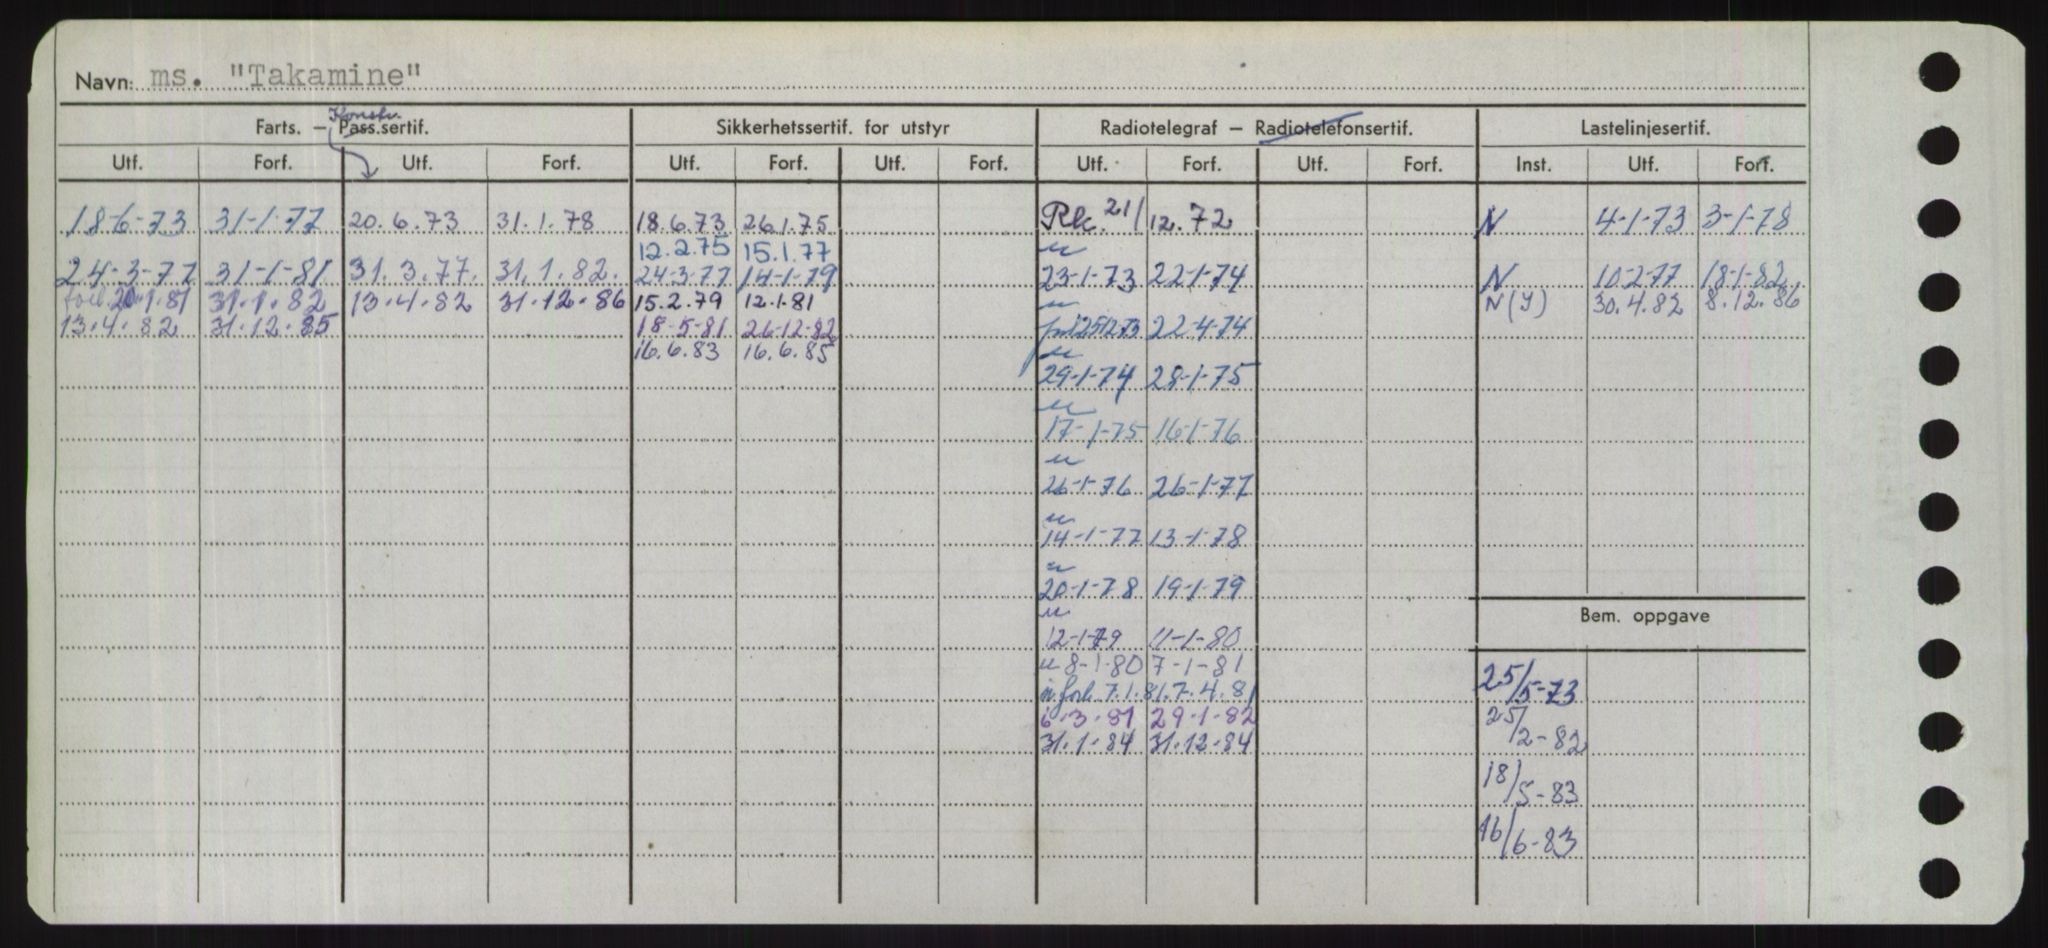 Navn: ms. "Takamine"
Konstr.
Farts. — Pass.sertif. Sikkerhetssertif. for utstyr Radiotelegraf — Radiotelefonsertif. Lastelinjesertif.
Utf. Forf. Utf. Forf. Utf. Forf. Utf. Forf. Utf. Forf. Utf. Forf. Inst. Utf. Forf.
18-6-73 31-1-77 20.6.73 31.1.78 18.6.73 26.1.75 Rk. 21/12.72 N 4-1-73 3-1-78
12.2.75 15.1.77 u
24-3-77 31-1-81 31.3.77. 31.1.82. 24-3-77 14-1-79 23-1-73 22-1-74 N 10-2-77 18-1-82
forl. 20.1.81 31.1.82 13.4.82 31.12.86 15.2.79 12.1.81 u N(Y) 30.4.82 8.12.86
13.4.82 31.12.85 18-5-81 26-12-82 22-4-74
16.6.83 16.6.85 u
29-1-74 28-1-75
u
17-1-75 16-1-76
u
26-1-76 26-1-77
u
14-1-77 13-1-78
u
20-1-78 19-1-79
u
Bem. oppgave
12-1-79 11-1-80
u 8-1-80 7-1-81
u forl. 7.1.81. 7.4.81 25/5-73
6.3.81 29.1.82 25/2-82
31.1.84 31.12.84
18/5-83
16/6-83